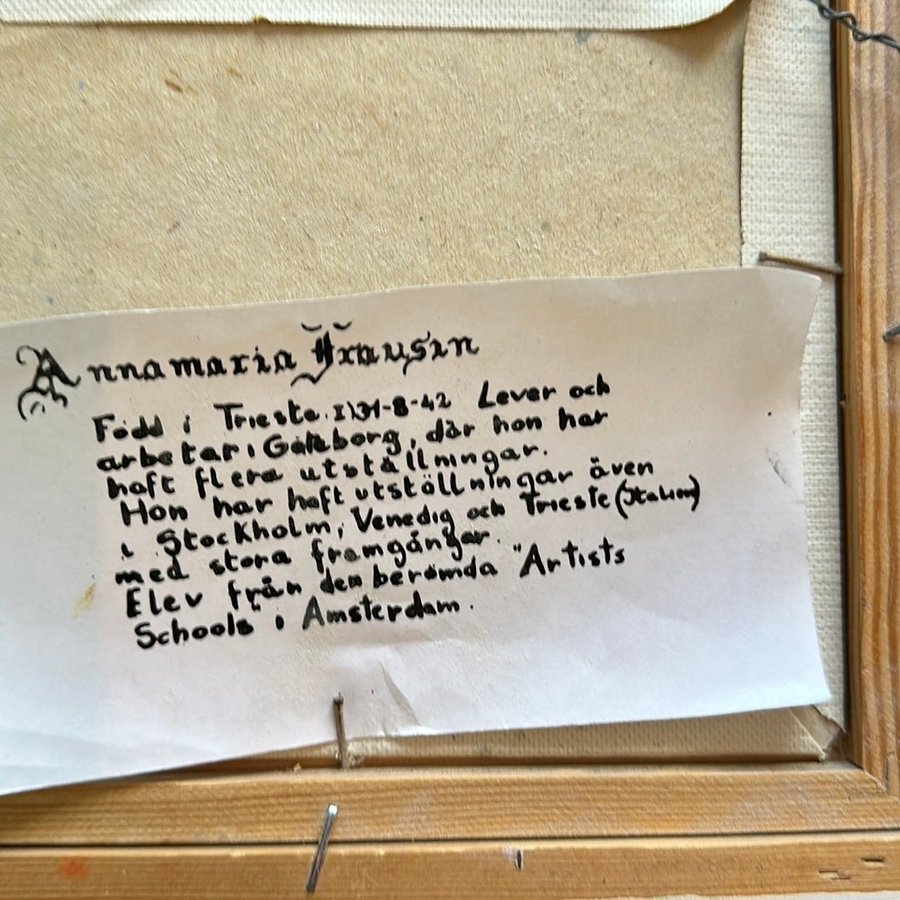 Annamaria Frausin
Född i Trieste. I) 31-8-42 Lever och
arbetar i Göteborg, där hon har
haft flera utställningar.
Hon har haft utställningar även
i Stockholm, Venedig och Trieste (Italien)
med stora framgångar.
Elev från den berömda "Artists
Schools i Amsterdam.